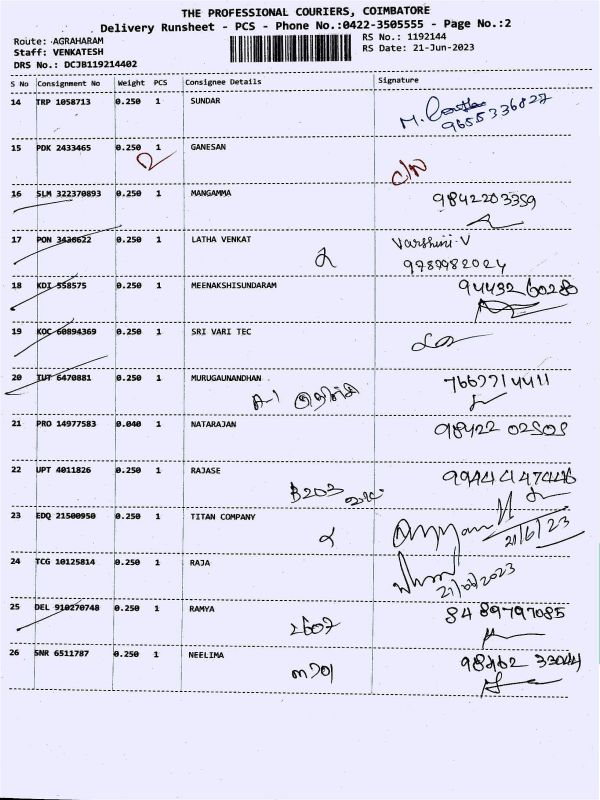 THE PROFESSIONAL COURIERS, COIMBATORE
Delivery Runsheet - PCS - Phone No.:0422-3505555 - Page No.:2
Route: AGRAHARAM
Staff: VENKATESH
DRS No.: DCJB119214402
RS No.: 1192144
RS Date: 21-Jun-2023
S No Consignment No Weight PCS Consignee Details Signature
14 TRP 1058713 0.250 1 SUNDAR
9655336827
15 PDK 2433465 0.250 1 GANESAN
C/N
16 SLM 322370893 0.250 1 MANGAMMA 9842203359
17 PON 3436622 0.250 1 LATHA VENKAT Varshini.V
9789982024
18 KDI 558575 0.250 1 MEENAKSHISUNDARAM 9443260280
19 KOC 60894369 0.250 1 SRI VARI TEC
20 TUT 6470881 0.250 1 MURUGAUNANDHAN 7667714411
21 PRO 14977583 0.040 1 NATARAJAN 98422 02505
22 UPT 4011826 0.250 1 RAJASE 9944147446
B203
23 EDQ 21500950 0.250 1 TITAN COMPANY
21/6/23
24 TCG 10125814 0.250 1 RAJA
21/06/2023
25 DEL 910270748 0.250 1 RAMYA 8489797085
2607
26 SNR 6511787 0.250 1 NEELIMA 98462 33044